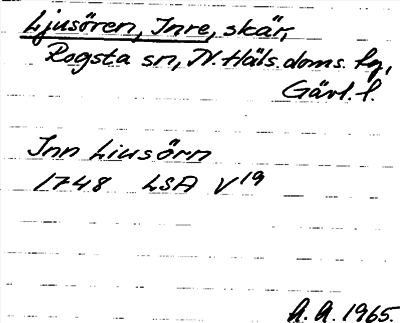 Ljusören, Inre, skär,
Rogsta sn, N. Häls. doms. fg,
Gävl. l.
Inn Liusörn
1748 LSA V19
A. A. 1965.